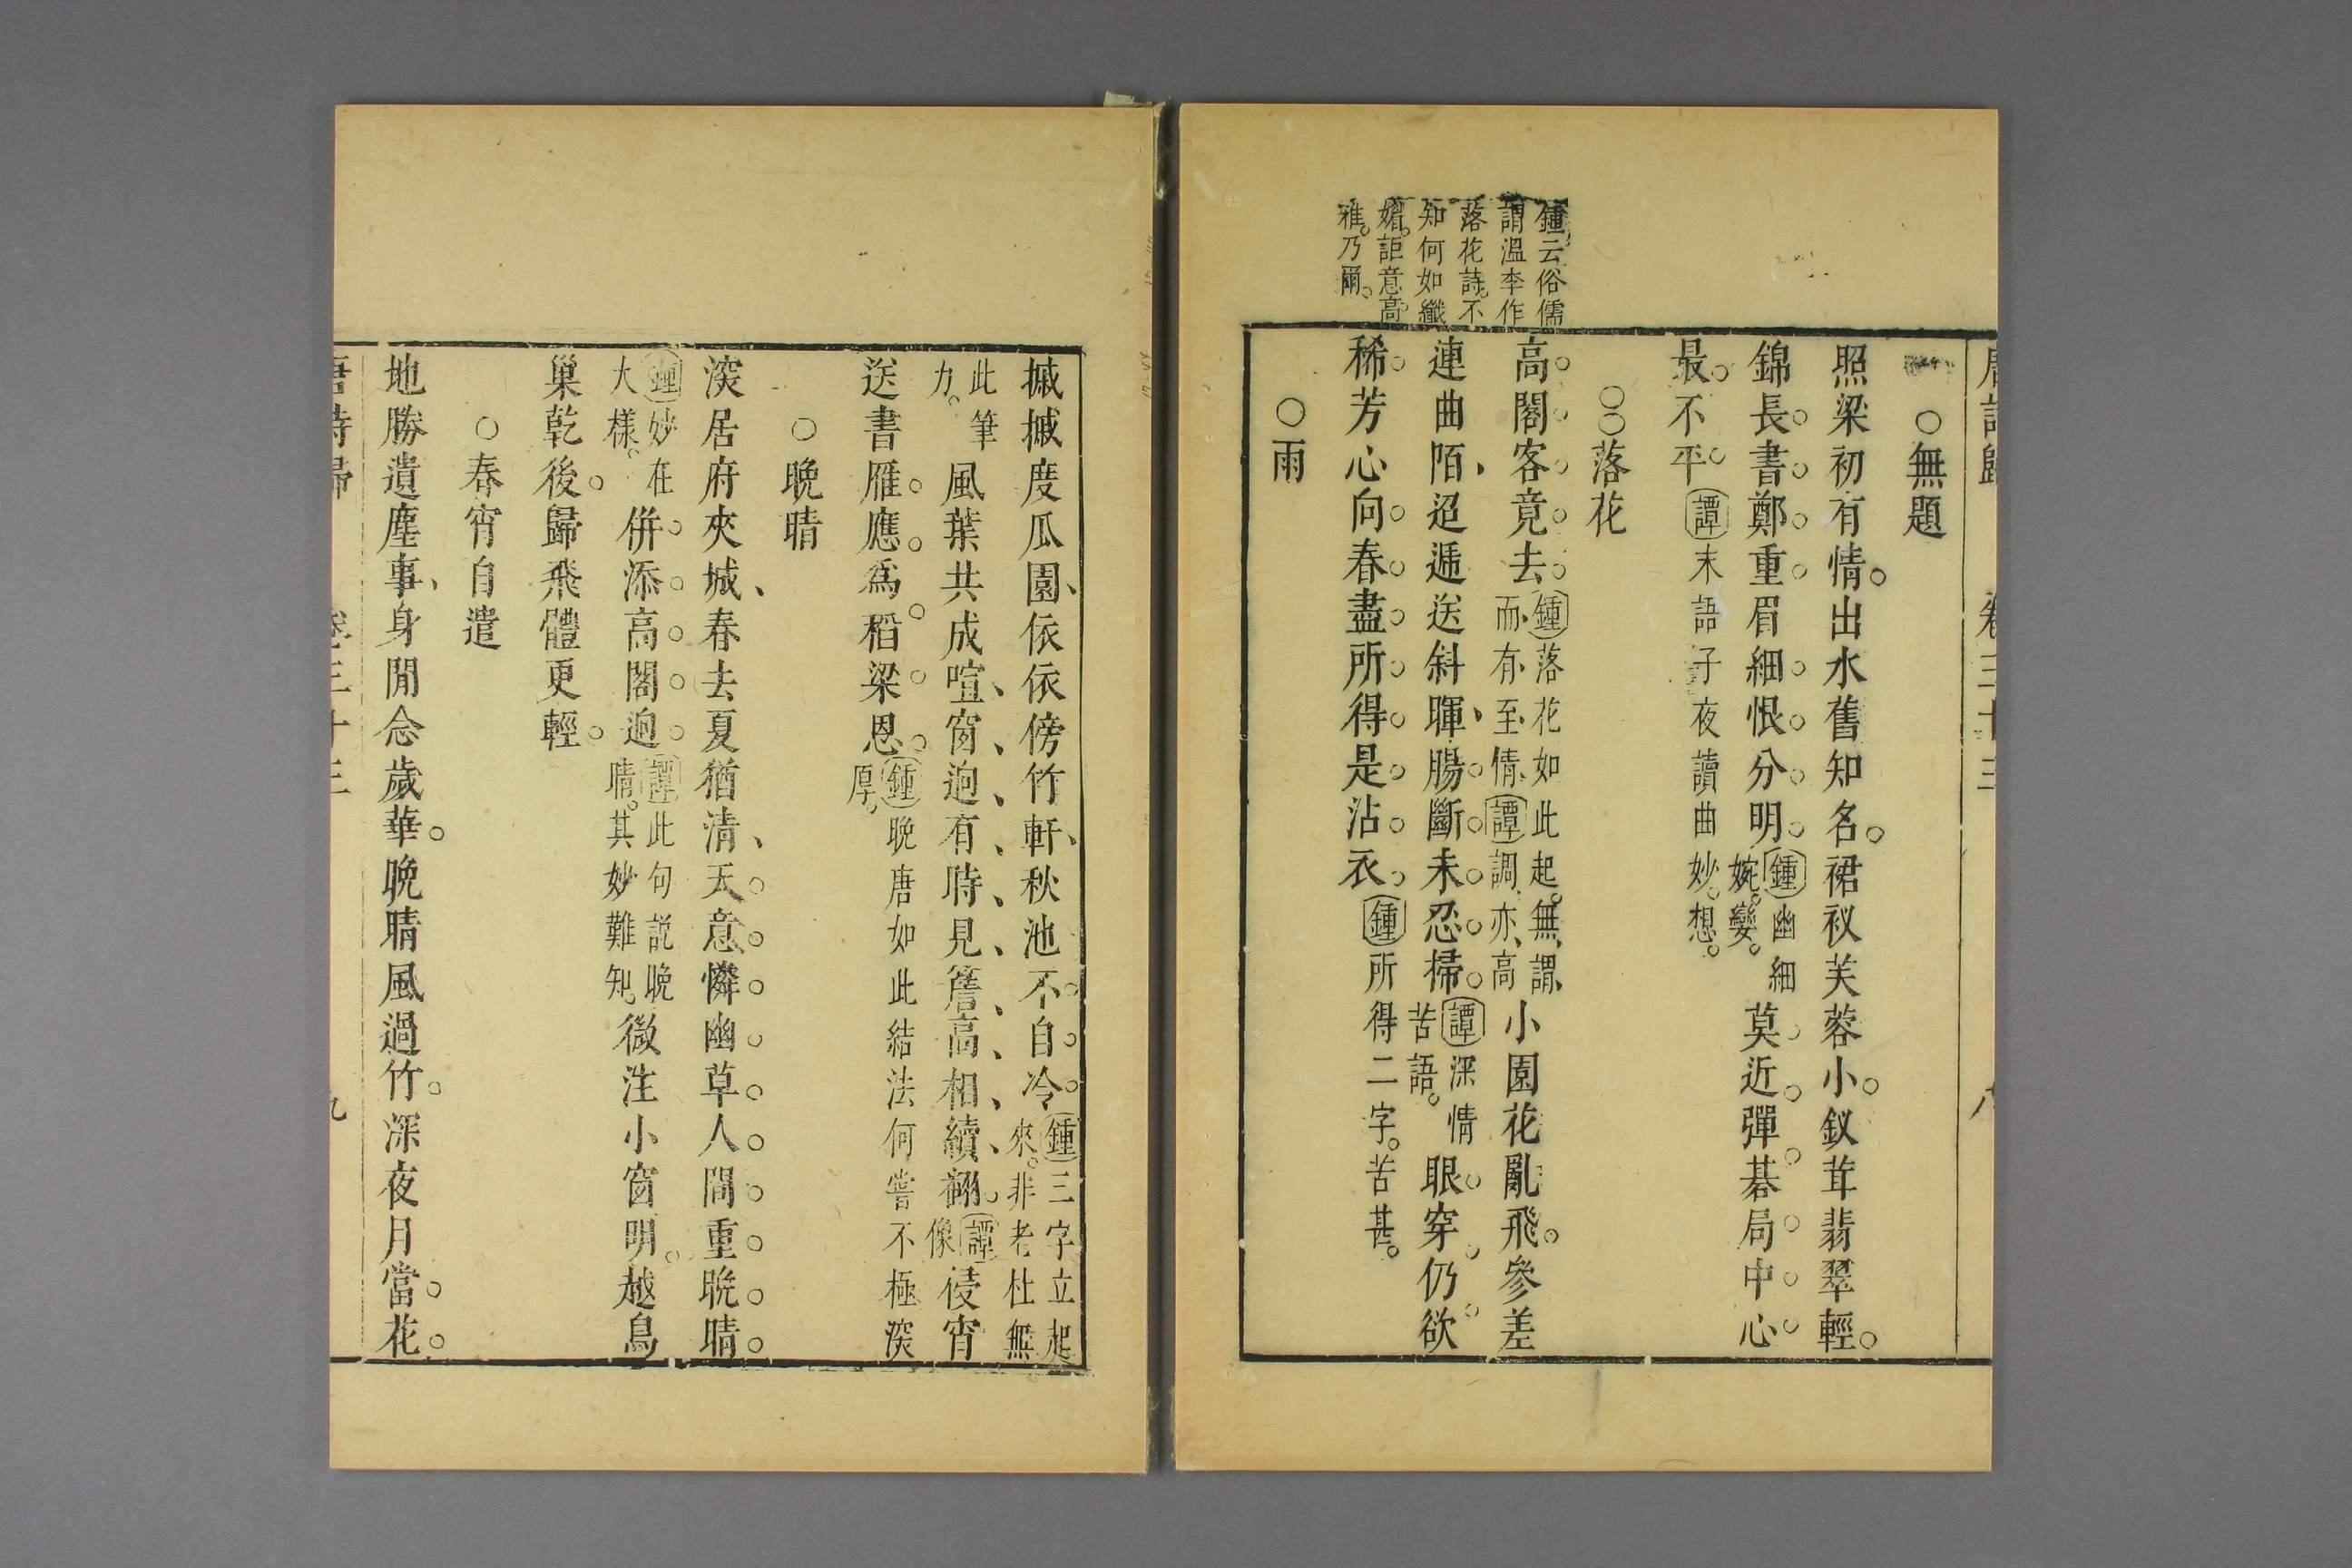 唐詩歸 卷三十三 八
○無題
照梁初有情。出水舊知名。裙衩芙蓉小。釵茸翡翠輕。
錦長書鄭重眉細恨分明。鍾幽細婉孌。莫近彈碁局中心
最不平。譚末語子夜讀曲妙想。
○○落花
高閣客竟去。鍾落花如此起。無謂而有至情譚調亦高小園花亂飛。參差
連曲陌、迢遞送斜暉、腸斷未忍掃。譚深情苦語。眼穿仍欲
稀。芳心向春盡所得是沾衣。鍾所得二字。苦甚。
○雨
鍾云俗儒
謂溫李作
落花詩。不
知何如纖
媚。詎意高
雅。乃爾。
摵摵度瓜園、依依傍竹軒、秋池不自冷。鍾三字立起來。非老杜無
此筆力。風葉共成喧、窗逈有時見簷高相續翻。譚像侵宵
送書雁。應爲稻梁恩。鍾晚唐如此結法何嘗不極深厚。
○晚晴
深居府夾城、春去夏猶清、天意憐幽草。人間重晩晴。
鍾妙在大樣。併添高閣逈。譚此句説晚晴。其妙難知。微注小窗明。越鳥
巢乾後。歸飛體更輕。
○春宵自遣
地勝遺塵事、身閒念歲華。晩晴風過竹。深夜月當花。
唐詩歸 卷三十三 九